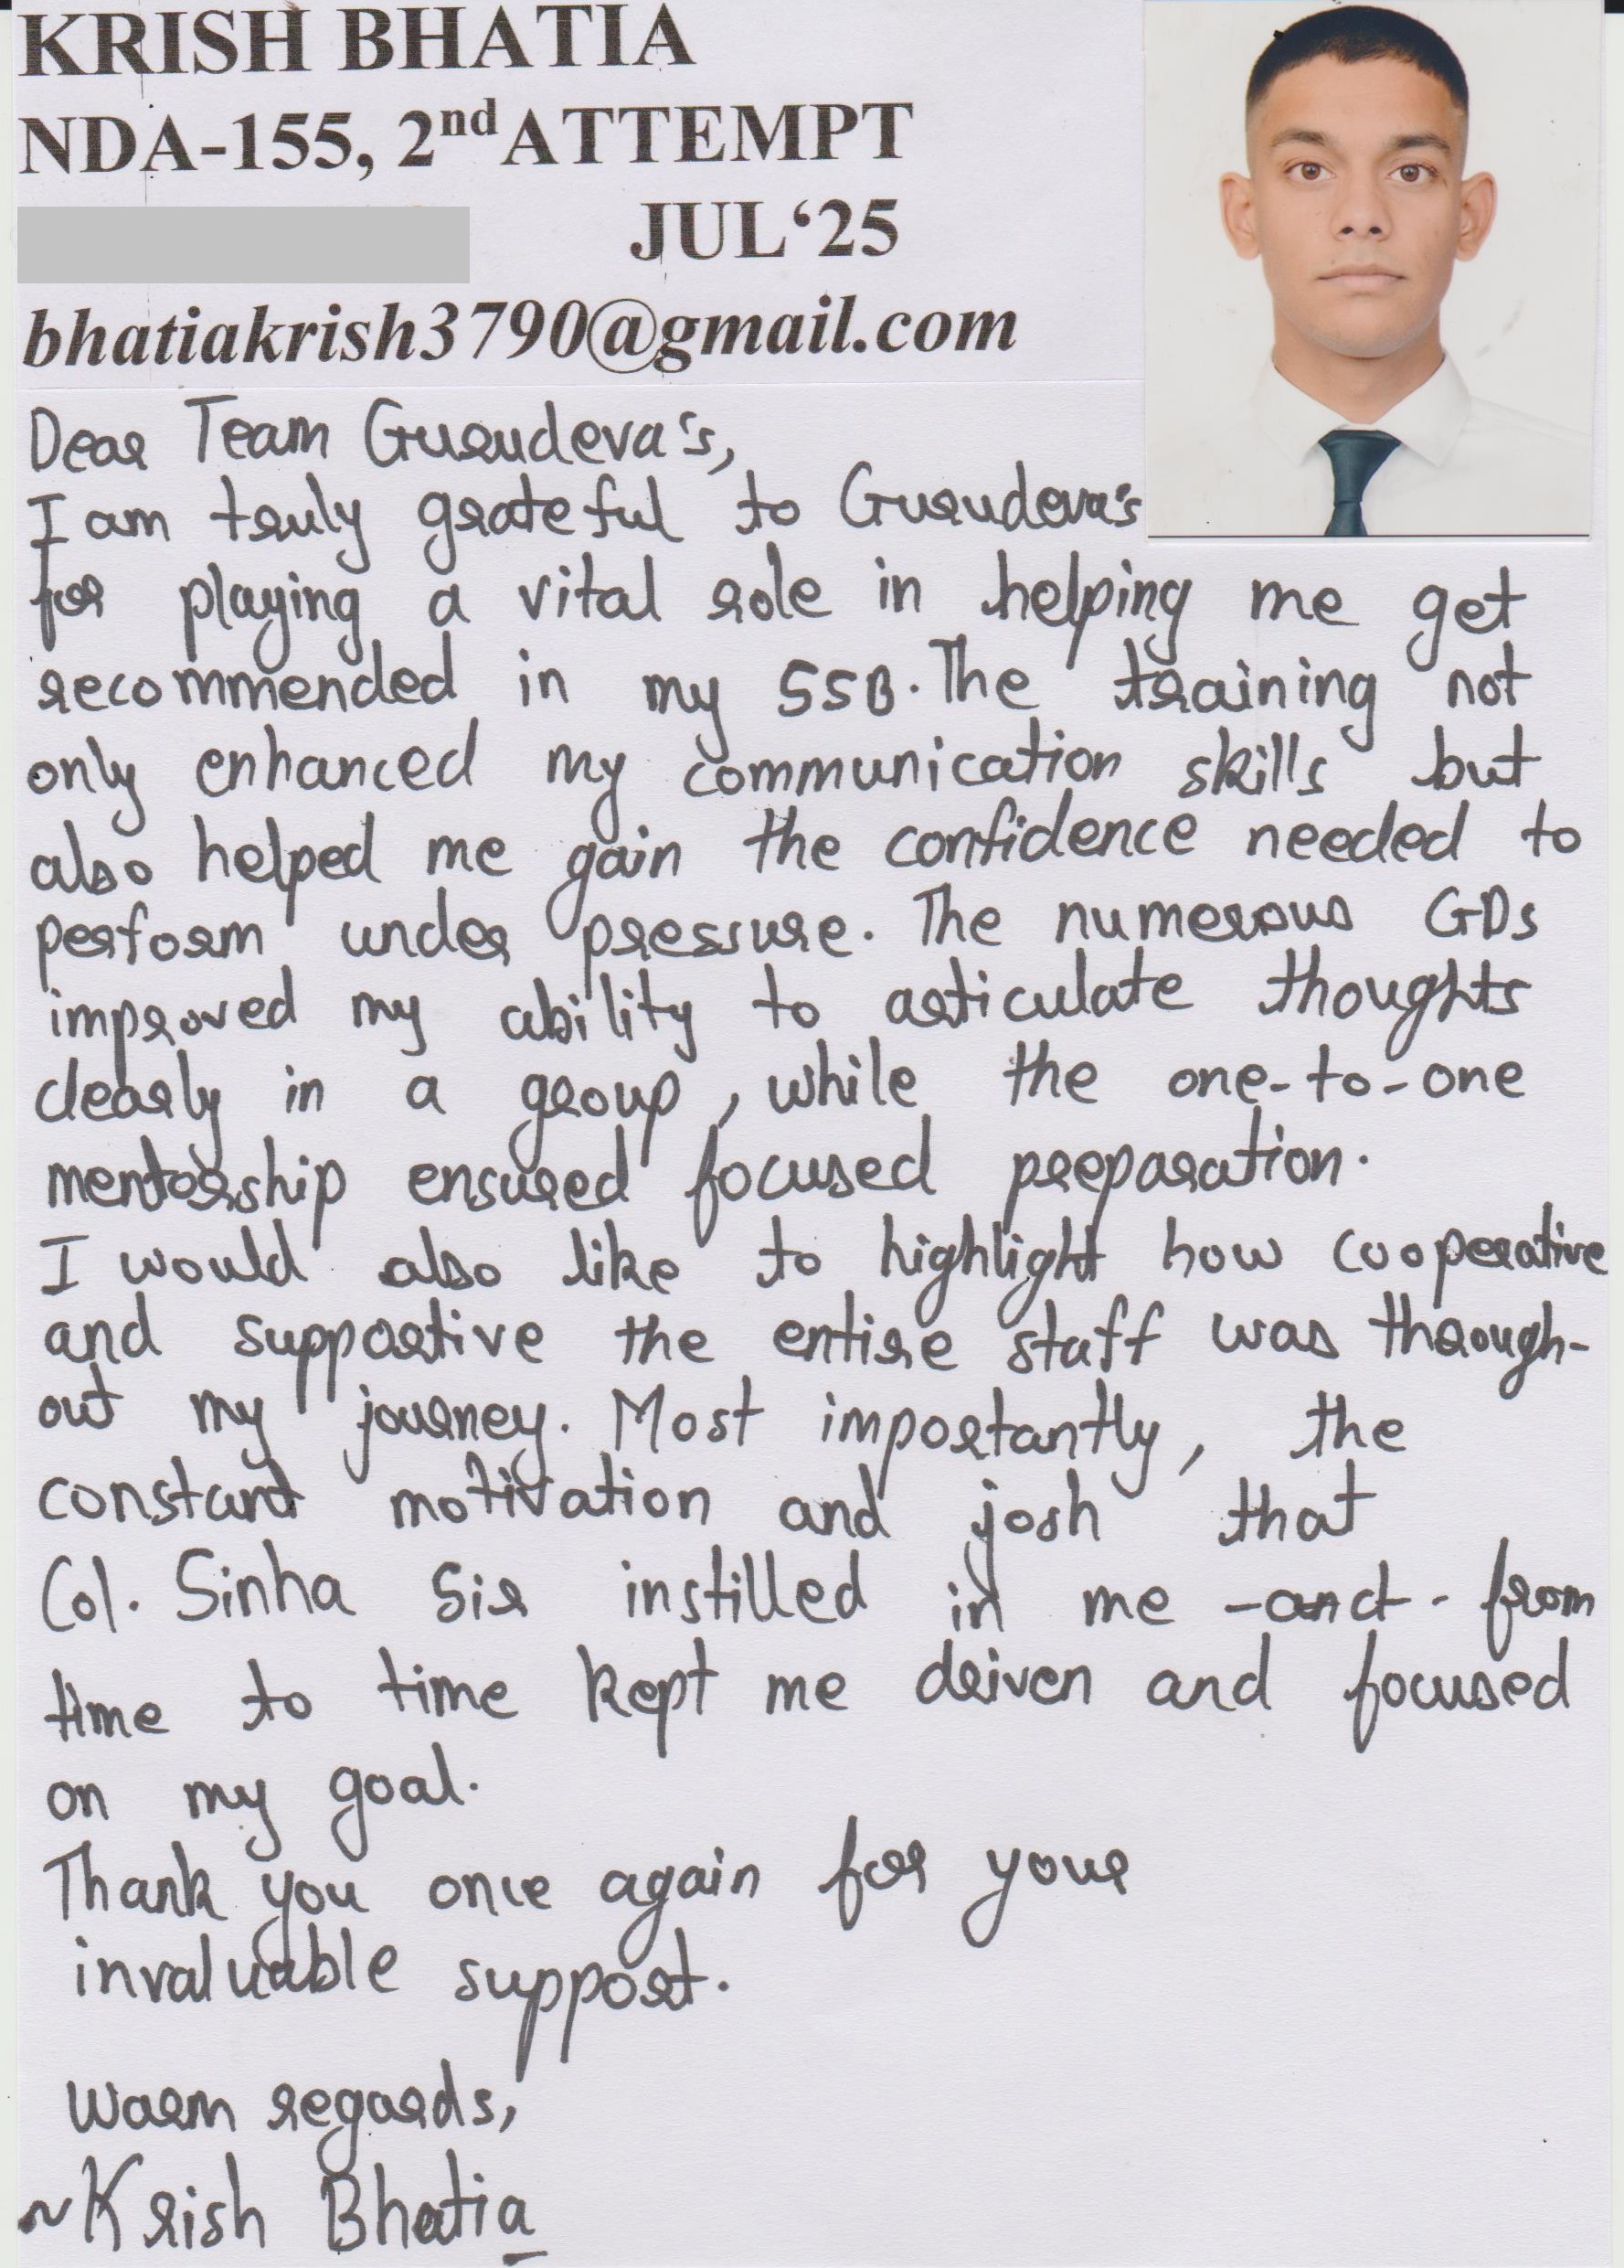 KRISH BHATIA
NDA-155, 2nd ATTEMPT
JUL‘25
bhatiakrish3790@gmail.com
Dear Team Gurudeva's,
I am truly grateful to Gurudeva's
for playing a vital role in helping me get
recommended in my SSB. The training not
only enhanced my communication skills but
also helped me gain the confidence needed to
perform under pressure. The numerous GDs
improved my ability to articulate thoughts
clearly in a group, while the one-to-one
mentorship ensured focused preparation.
I would also like to highlight how cooperative
and supportive the entire staff was through-
out my journey. Most importantly, the
constant motivation and josh that
Col. Sinha Sir instilled in me -and- from
time to time kept me driven and focused
on my goal.
Thank you once again for your
invaluable support.
Warm regards,
~Krish Bhatia